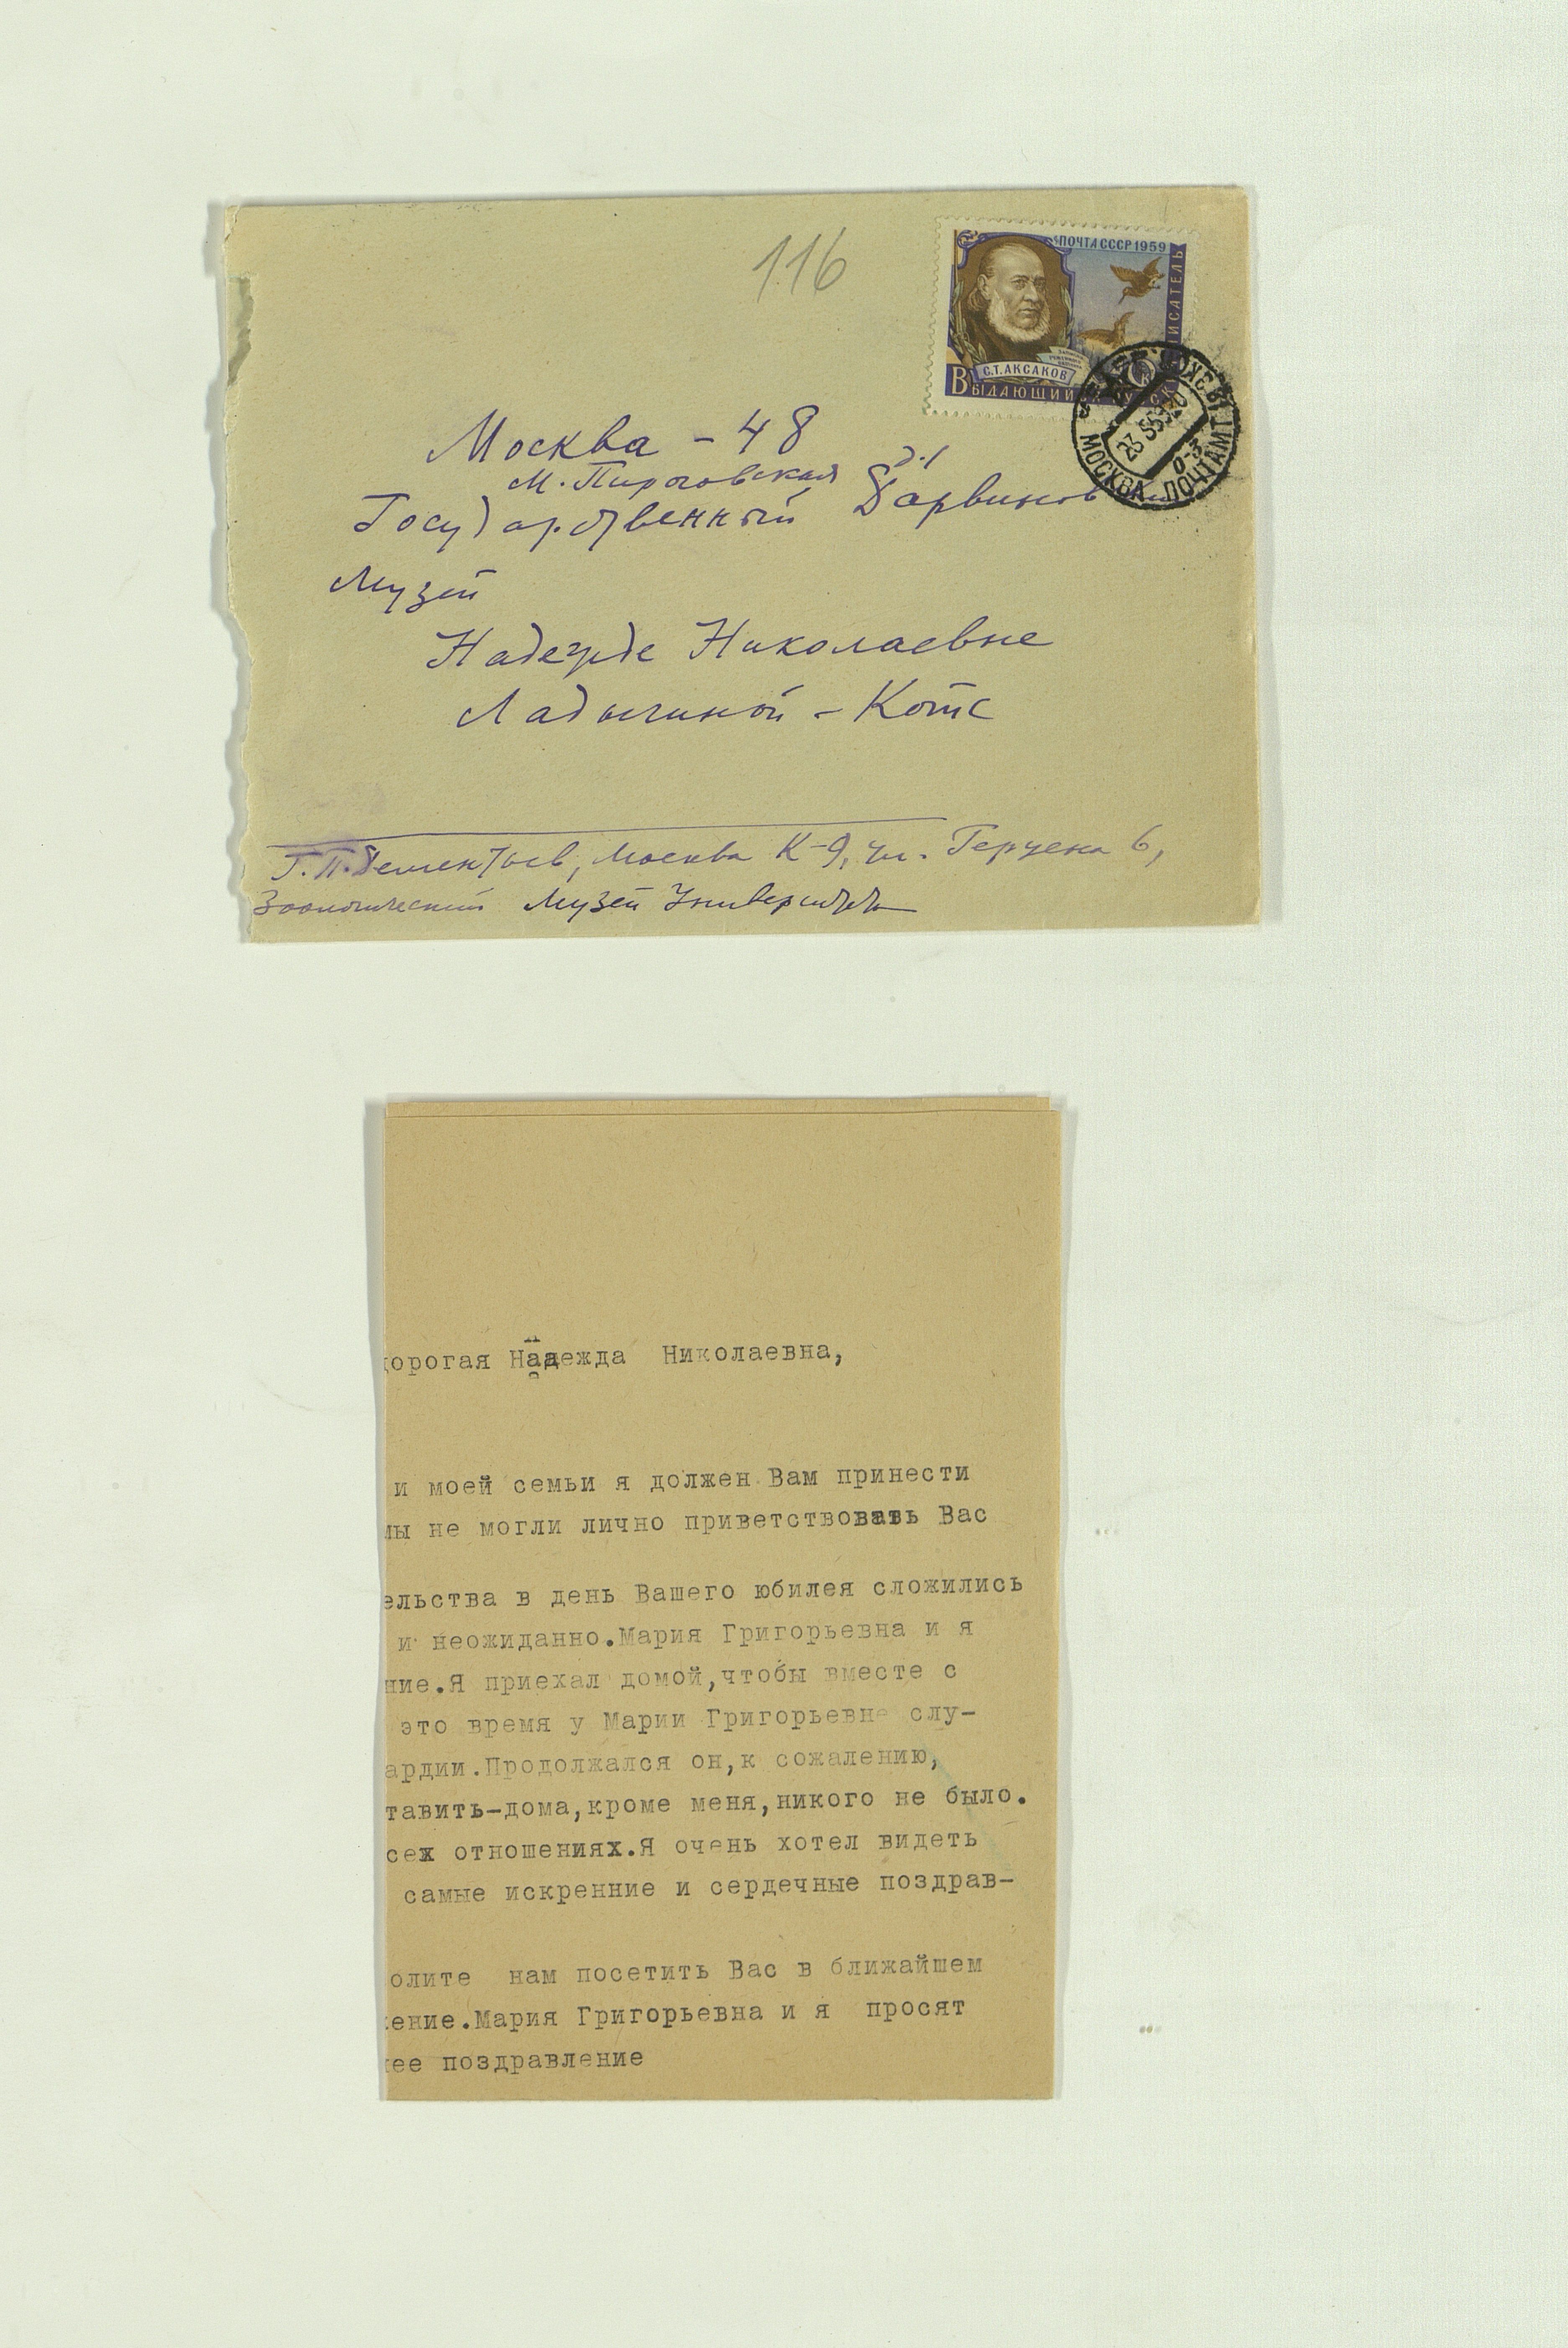 116
ПОЧТА СССР 1959
ПИСАТЕЛЬ
С.Т.АКСАКОВ
ВЫДАЮЩИЙСЯ РУССКИЙ
МОСКВА ПОЧТАМТ
Москва - 48
М. Пироговская д.1
Государственный Дарвиновский
Музей
Надежде Николаевне
Ладыгиной - Котс
Г.П. Дементьев, Москва К-9, ул. Герцена 6,
Зоологический Музей Университета
дорогая Надежда Николаевна,
и моей семьи я должен Вам принести
мы не могли лично приветствовать Вас
ельства в день Вашего юбилея сложились
и неожиданно.Мария Григорьевна и я
ние.Я приехал домой,чтобы вместе с
это время у Марии Григорьевне слу-
ардии.Продолжался он,к сожалению,
тавить-дома,кроме меня,никого не было.
сех отношениях.Я очень хотел видеть
самые искренние и сердечные поздрав-
олите нам посетить Вас в ближайшем
жение.Мария Григорьевна и я просят
ее поздравление